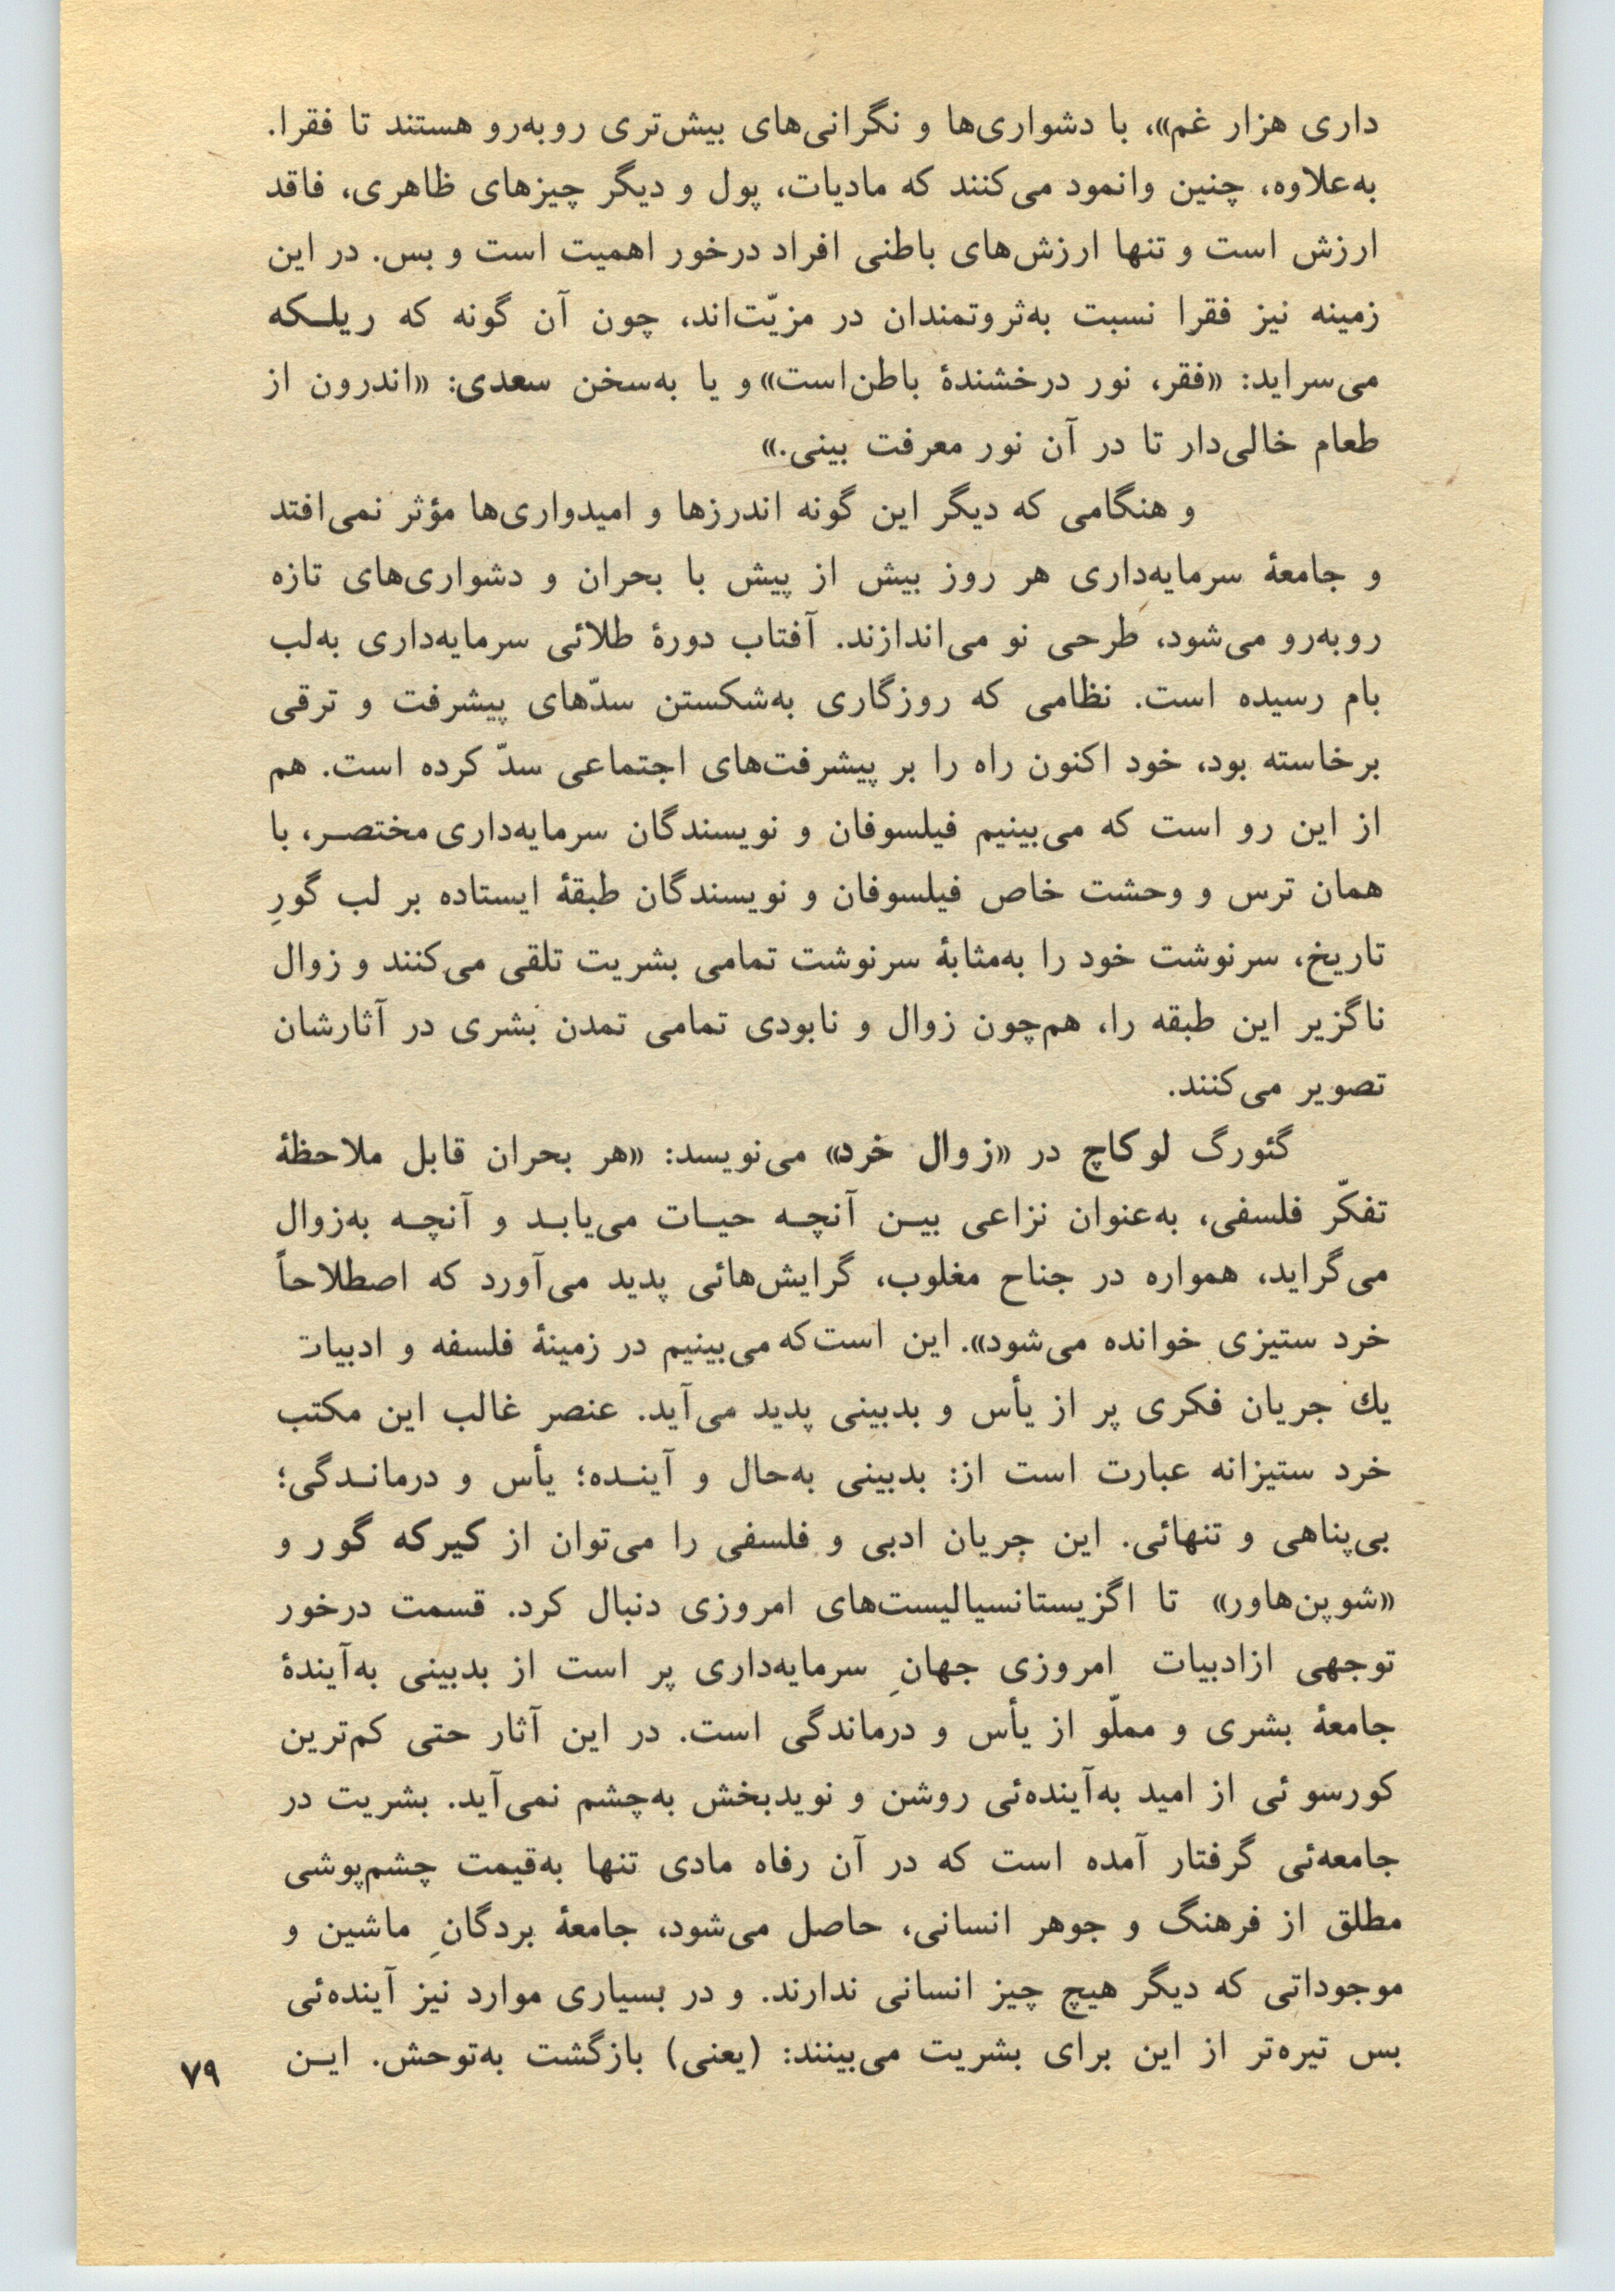 داری هزار غم»، با دشواری‌ها و نگرانی‌های بیش‌تری روبه‌رو هستند تا فقرا.
به‌علاوه، چنین وانمود می‌کنند که مادیات، پول و دیگر چیزهای ظاهری، فاقد
ارزش است و تنها ارزش‌های باطنی افراد درخور اهمیت است و بس. در این
زمینه نیز فقرا نسبت به‌ثروتمندان در مزیّت‌اند، چون آن گونه که ریلـکه
می‌سراید: «فقر، نور درخشندهٔ باطن‌است» و یا به‌سخن سعدی: «اندرون از
طعام خالی‌دار تا در آن نور معرفت بینی.»
و هنگامی که دیگر این گونه اندرزها و امیدواری‌ها مؤثر نمی‌افتد
و جامعهٔ سرمایه‌داری هر روز بیش از پیش با بحران و دشواری‌های تازه
روبه‌رو می‌شود، طرحی نو می‌اندازند. آفتاب دورهٔ طلائی سرمایه‌داری به‌لب
بام رسیده است. نظامی که روزگاری به‌شکستن سدّهای پیشرفت و ترقی
برخاسته بود، خود اکنون راه را بر پیشرفت‌های اجتماعی سدّ کرده است. هم
از این رو است که می‌بینیم فیلسوفان و نویسندگان سرمایه‌داری مختصـر، با
همان ترس و وحشت خاص فیلسوفان و نویسندگان طبقهٔ ایستاده بر لب گورِ
تاریخ، سرنوشت خود را به‌مثابهٔ سرنوشت تمامی بشریت تلقی می‌کنند و زوال
ناگزیر این طبقه را، هم‌چون زوال و نابودی تمامی تمدن بشری در آثارشان
تصویر می‌کنند.
گئورگ لوکاچ در «زوال خرد» می‌نویسد: «هر بحران قابل ملاحظهٔ
تفکّر فلسفی، به‌عنوان نزاعی بیـن آنچـه حیـات می‌یابـد و آنچـه به‌زوال
می‌گراید، همواره در جناح مغلوب، گرایش‌هائی پدید می‌آورد که اصطلاحاً
خرد ستیزی خوانده می‌شود». این است‌که می‌بینیم در زمینهٔ فلسفه و ادبیات
یك جریان فکری پر از یأس و بدبینی پدید می‌آید. عنصر غالب این مکتب
خرد ستیزانه عبارت است از: بدبینی به‌حال و آینـده؛ یأس و درمانـدگی؛
بی‌پناهی و تنهائی. این جریان ادبی و فلسفی را می‌توان از کیرکه گور و
«شوپن‌هاور» تا اگزیستانسیالیست‌های امروزی دنبال کرد. قسمت درخور
توجهی ازادبیات امروزی جهانِ سرمایه‌داری پر است از بدبینی به‌آیندهٔ
جامعهٔ بشری و مملّو از یأس و درماندگی است. در این آثار حتی کم‌ترین
کورسو ئی از امید به‌آینده‌ئی روشن و نویدبخش به‌چشم نمی‌آید. بشریت در
جامعه‌ئی گرفتار آمده است که در آن رفاه مادی تنها به‌قیمت چشم‌پوشی
مطلق از فرهنگ و جوهر انسانی، حاصل می‌شود، جامعهٔ بردگانِ ماشین و
موجوداتی که دیگر هیچ چیز انسانی ندارند. و در بسیاری موارد نیز آینده‌ئی
بس تیره‌تر از این برای بشریت می‌بینند: (یعنی) بازگشت به‌توحش. ایـن
۷۹